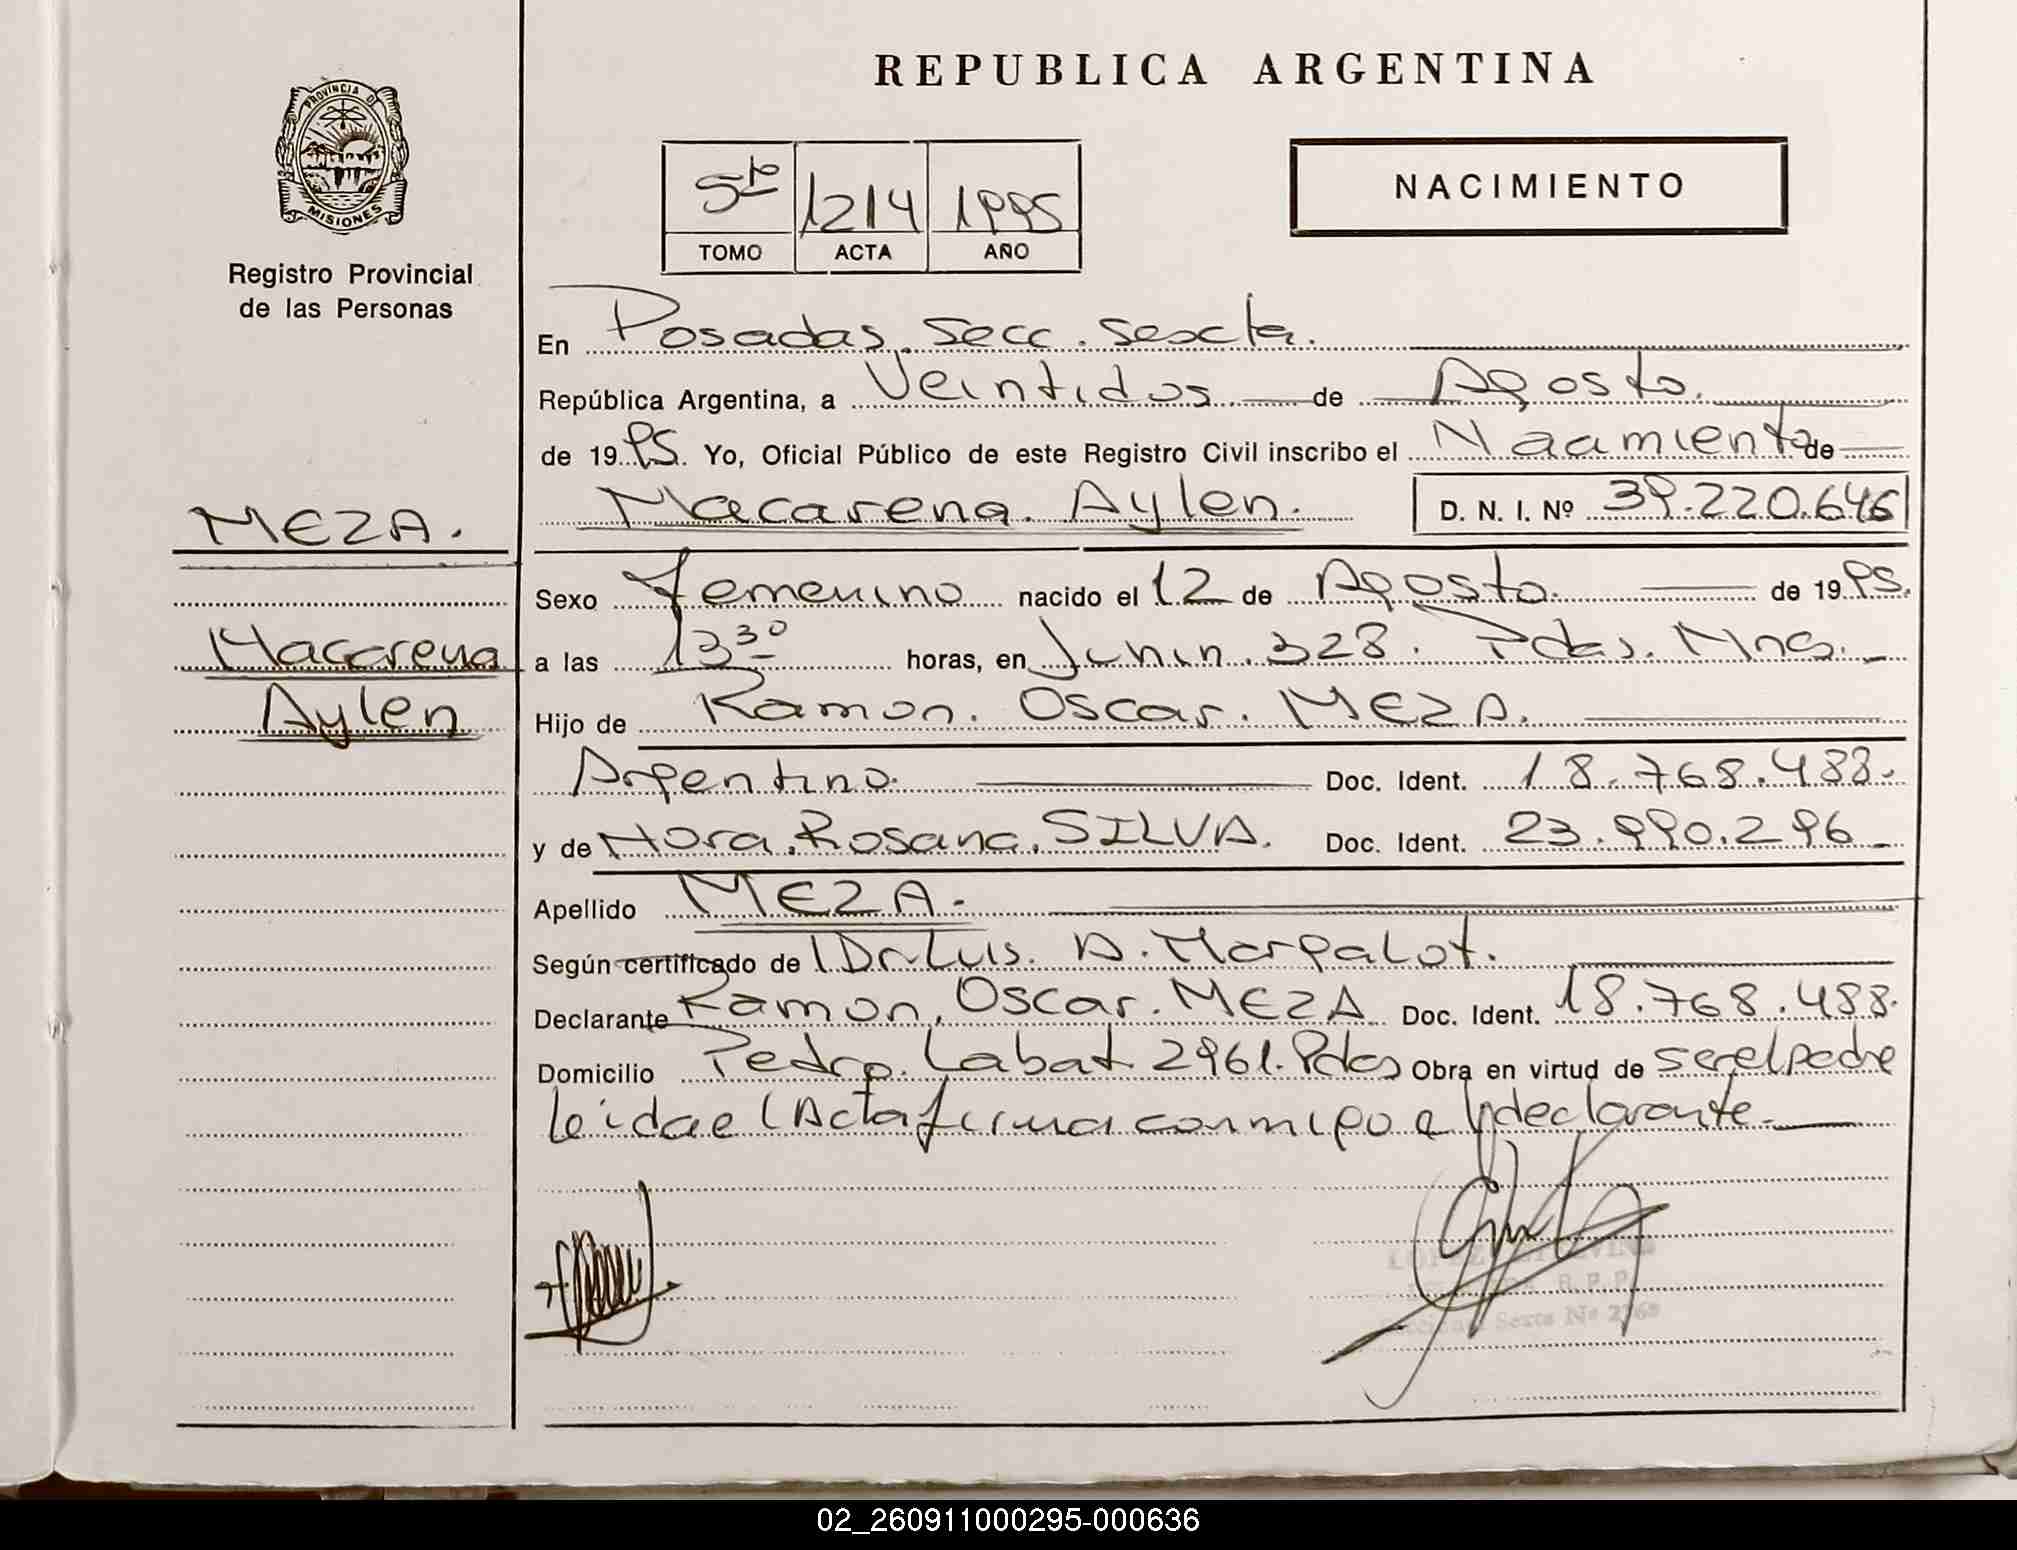 REPUBLICA ARGENTINA
PROVINCIA DE
MISIONES
Registro Provincial
de las Personas
5to 1214 1995
TOMO ACTA AÑO
NACIMIENTO
En Posadas. Secc. Sexcta.
República Argentina, a Veintidos de Agosto.
de 1995. Yo, Oficial Público de este Registro Civil inscribo el Nacimiento de
MEZA.
Macarena. Aylen. D. N. I. Nº 39.220.646
Sexo femenino nacido el 12 de Agosto. de 1995.
Macarena
a las 13 30 horas, en Junin. 328. Pdas. Mnes.
Aylen
Hijo de Ramon. Oscar. MEZA.
Argentino. Doc. Ident. 18.768.488.
y de Nora. Rosana. SILVA. Doc. Ident. 23.990.296
Apellido MEZA.
Según certificado de Dr. Luis. A. Margalot.
Declarante Ramon. Oscar. MEZA Doc. Ident. 18.768.488.
Domicilio Pedro. Labat 2961. Pdas Obra en virtud de ser el padre
leida el Acta firma conmigo el declarante.
LOPEZ
R. P. P.
Sexta Nº
02_260911000295-000636